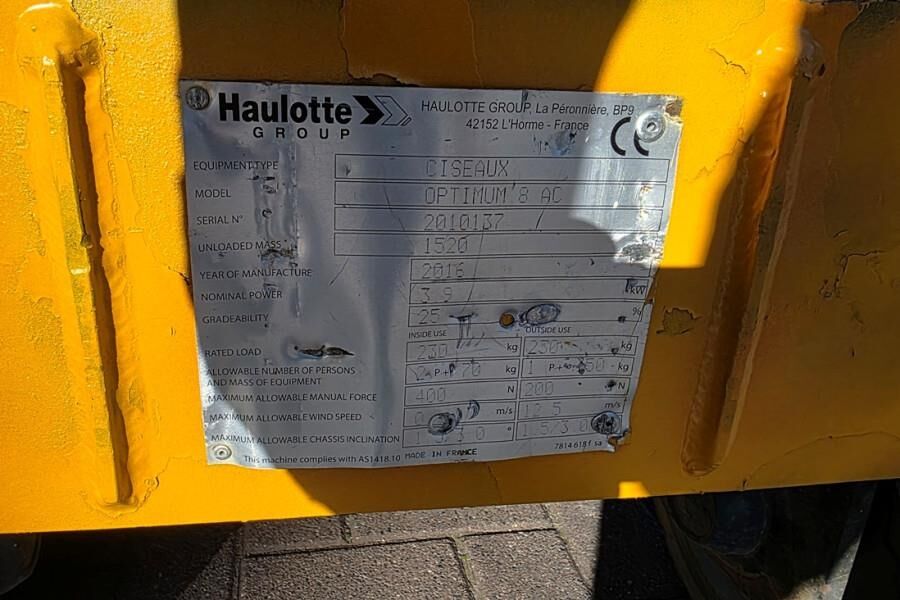 Haulotte
GROUP
HAULOTTE GROUP, La Péronnière, BP9
42152 L'Horme - France
CE
EQUIPMENT TYPE CISEAUX
MODEL OPTIMUM 8 AC
SERIAL N° 2010137
UNLOADED MASS 1520
YEAR OF MANUFACTURE 2016
NOMINAL POWER 3.9 kW
GRADEABILITY 25 %
INSIDE USE OUTSIDE USE
RATED LOAD 230 kg 230 kg
ALLOWABLE NUMBER OF PERSONS
AND MASS OF EQUIPMENT P+ 70 kg 1 P+ kg
MAXIMUM ALLOWABLE MANUAL FORCE 400 N 200 N
MAXIMUM ALLOWABLE WIND SPEED 0 m/s 12.5 m/s
MAXIMUM ALLOWABLE CHASSIS INCLINATION ° 1.5/3.0
This machine complies with AS1418.10 MADE IN FRANCE 7814 618 f sa